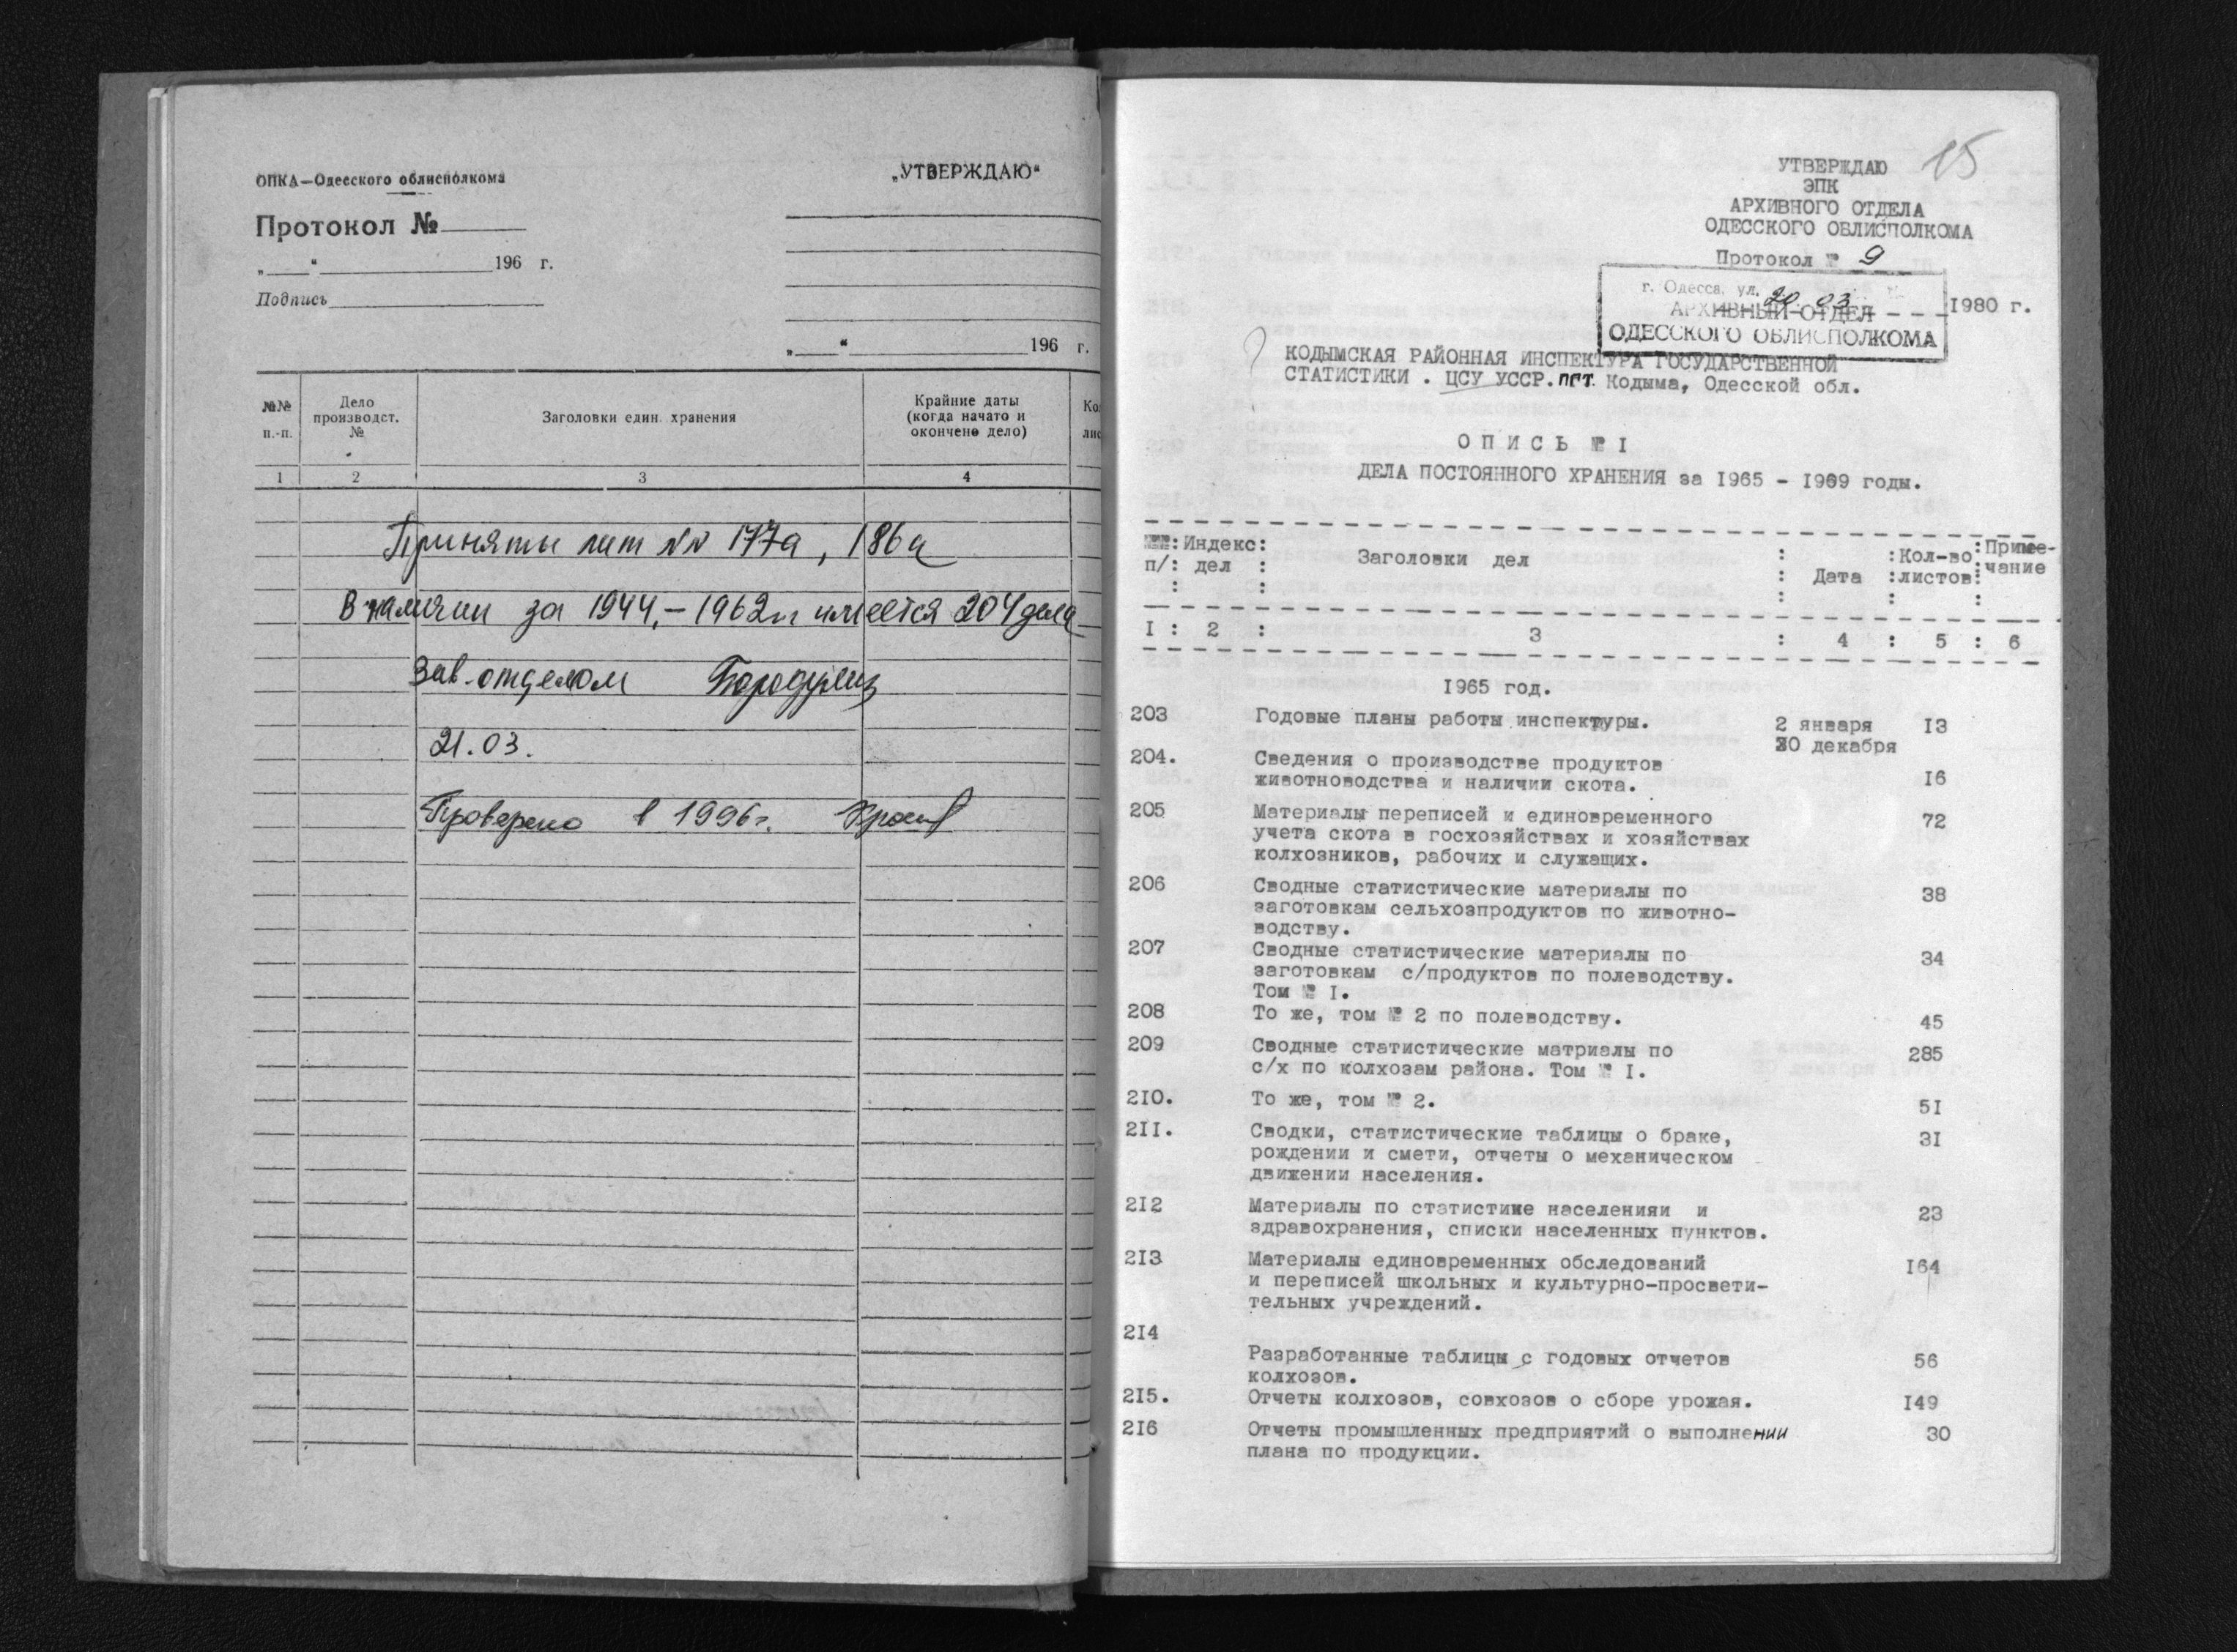 ОПКА—Одесского облисполкома
Протокол №
„ “ 196 г.
Подпись
„УТВЕРЖДАЮ“
„ “ 196 г.
№№ п.-п.
Дело производст. №
Заголовки един. хранения
Крайние даты (когда начато и окончено дело)
1 2 3 4
Приняты лит №№ 177а, 186а
В наличии за 1944,-1962гг имеется 204 дела
Зав. отделом
21.03.
Проверено в 1996г.
15
УТВЕРЖДАЮ
ЭПК
АРХИВНОГО ОТДЕЛА
ОДЕССКОГО ОБЛИСПОЛКОМА
Протокол № 9
г. Одесса, ул.
20.03 1980 г.
АРХИВНЫЙ ОТДЕЛ
ОДЕССКОГО ОБЛИСПОЛКОМА
КОДЫМСКАЯ РАЙОННАЯ ИНСПЕКТУРА ГОСУДАРСТВЕННОЙ
СТАТИСТИКИ . ЦСУ УССР. пгт. Кодыма, Одесской обл.
О П И С Ь № I
ДЕЛА ПОСТОЯННОГО ХРАНЕНИЯ за I965 - I969 годы.
№№ п/ : Индекс дел : Заголовки дел : Дата : Кол-во листов : Приме-чание
I : 2 : 3 : 4 : 5 : 6
I965 год.
203 Годовые планы работы инспектуры. 2 января I3
30 декабря
204. Сведения о производстве продуктов
животноводства и наличии скота. I6
205 Материалы переписей и единовременного 72
учета скота в госхозяйствах и хозяйствах
колхозников, рабочих и служащих.
206 Сводные статистические материалы по 38
заготовкам сельхозпродуктов по животно-
водству.
207 Сводные статистические материалы по 34
заготовкам с/продуктов по полеводству.
Том № I.
208 То же, том № 2 по полеводству. 45
209 Сводные статистические матриалы по 285
с/х по колхозам района. Том № I.
2I0. То же, том № 2. 5I
2II. Сводки, статистические таблицы о браке, 3I
рождении и смети, отчеты о механическом
движении населения.
2I2 Материалы по статистике населенияи и 23
здравохранения, списки населенных пунктов.
2I3 Материалы единовременных обследований I64
и переписей школьных и культурно-просвети-
тельных учреждений.
2I4
Разработанные таблицы с годовых отчетов 56
колхозов.
2I5. Отчеты колхозов, совхозов о сборе урожая. I49
2I6 Отчеты промышленных предприятий о выполнении 30
плана по продукции.